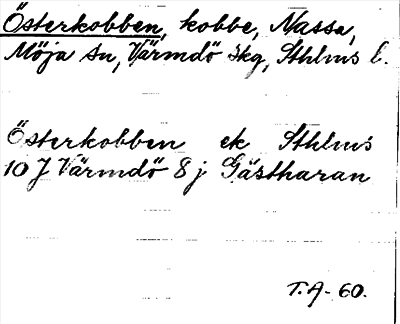 Österkobben, kobbe, Nassa,
Möja sn, Värmdö skg, Sthlms l.
Österkobben ek Sthlms
10 J Värmdö 8 j Gästharan
T.A. 60.